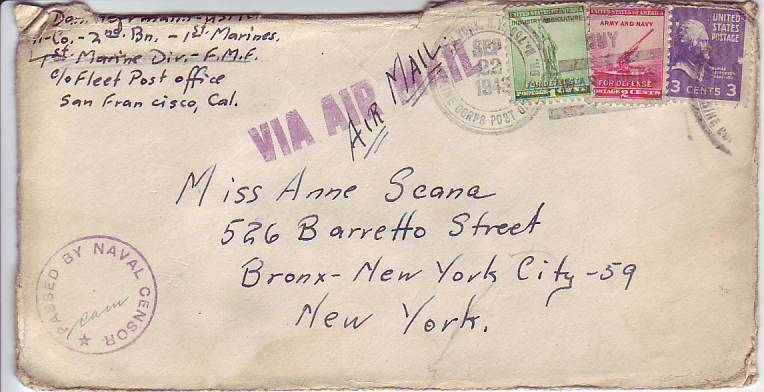 Don
-Co.- 2nd Bn. - 1st Marines.
1st Marine Div.- F.M.F.
c/o Fleet Post office
San Francisco, Cal.
VIA AIR MAIL
AIR MAIL
SEP
22
1943
CORPS POST
INDUSTRY AGRICULTURE
FOR DEFENSE
1 CENT
ARMY AND NAVY
FOR DEFENSE
POSTAGE 2 CENTS
UNITED
STATES
POSTAGE
3 CENTS 3
Miss Anne Scana
526 Barretto Street
Bronx- New York City -59
New York.
PASSED BY NAVAL CENSOR